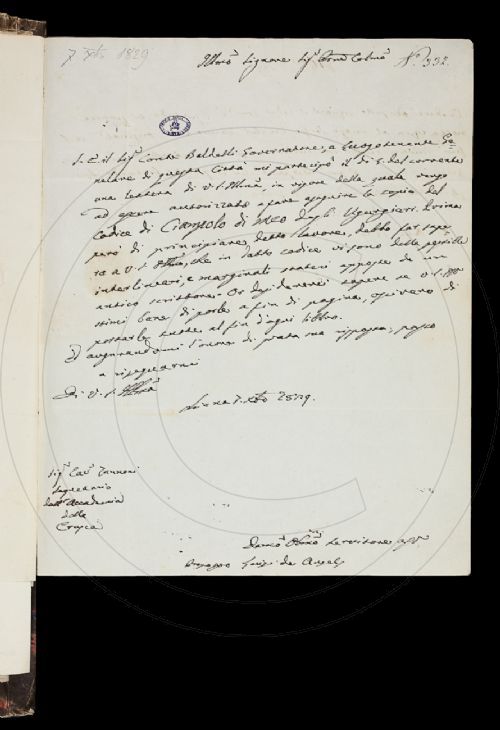 7 Xbre 1829
Illmo Signore Sigr Prone Colmo N.o 332.
S. E. il Sigr Conte Baldelli Governatore, e Luogotenente Ge=
nerale di questa Città mi partecipò il dì 5. del corrente
una lettera di V. S. Illma, in vigore della quale vengo
ad essere autorizzato a fare eseguire la copia del
Codice di Ciampolo di Meo degli Ugurgieri. Prima
però di principiare detto lavoro, debbo far sape=
re a V. S. Illma, che in detto codice vi sono delle postille
interlineari, e marginali state apposte da un
antico scrittore. Or desidererei sapere se V. S.
stimi bene di porle a fin di pagina, o
portarle tutte al fin d'ogni libro.
Ed augurandomi l'onore di grata sua risposta, passo
a rassegnarmi
Di V. S. Illma
Siena 7. Xbre 1829.
Sigr Cavr Zannoni
Segretario
dell'Accademia
della
Crusca
Devmo Obbmo Servitore
Luigi de Angelis